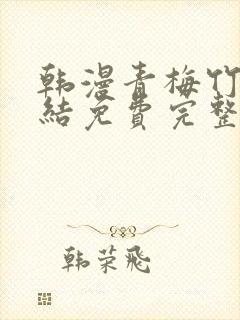 韩漫青梅竹
结免费完整
韩荣飞